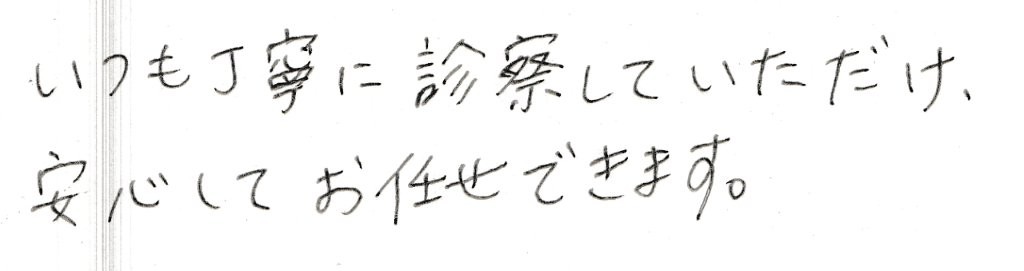 いつも丁寧に診察していただけ、
安心してお任せできます。